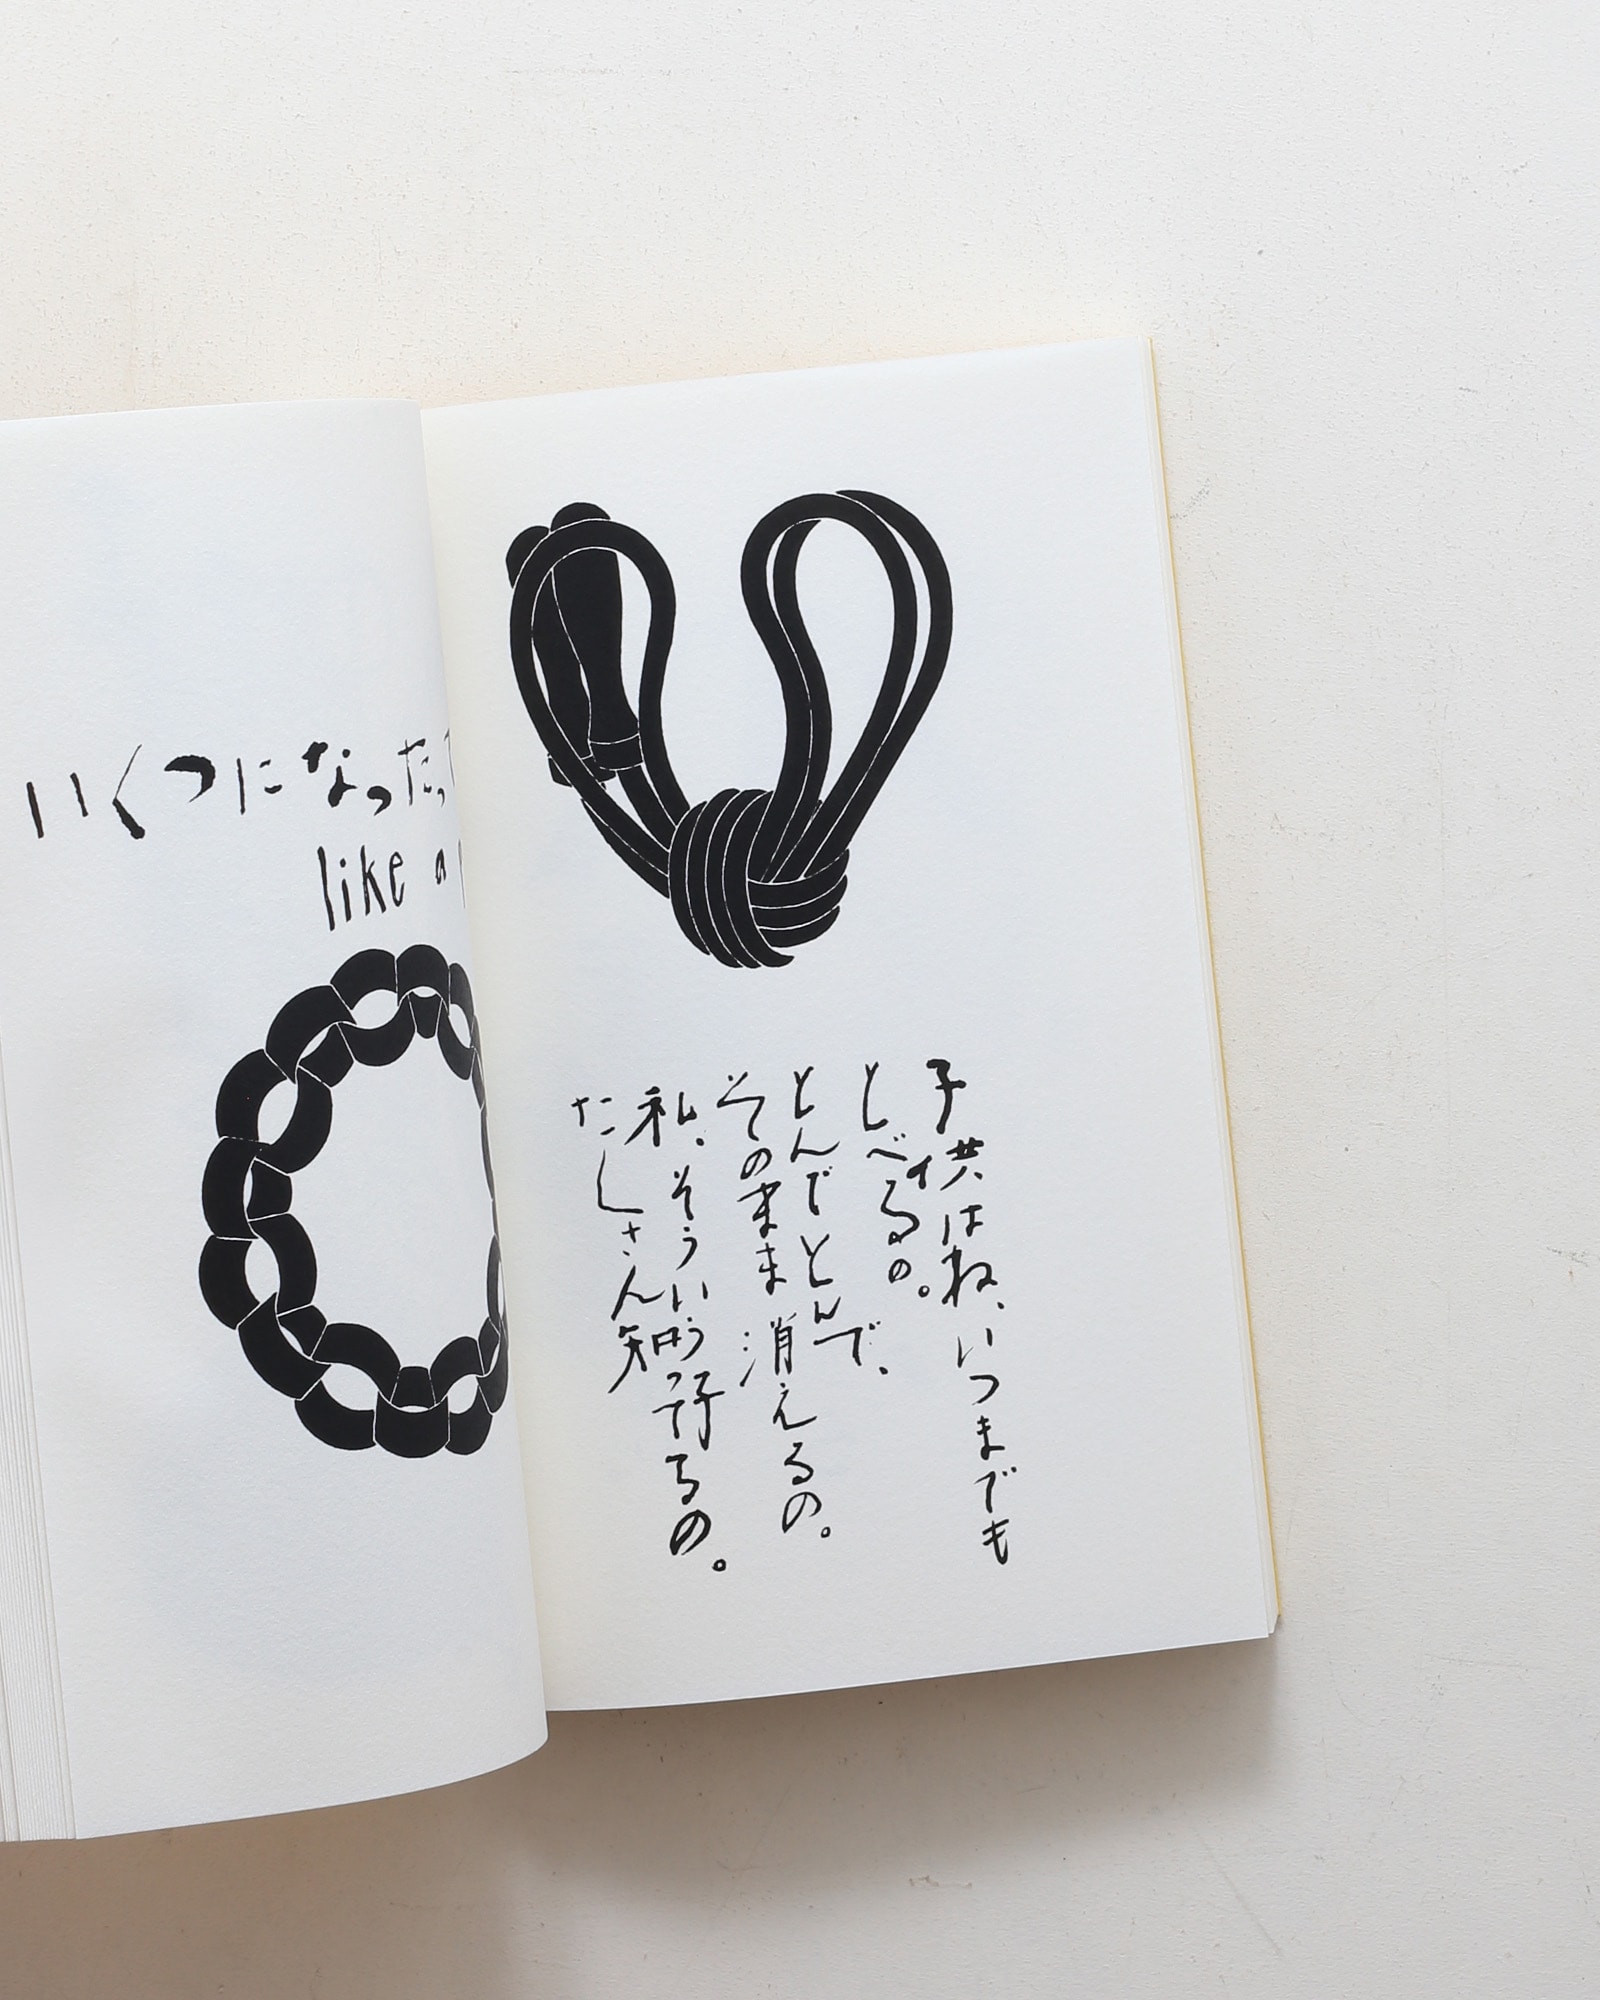 いくつになったっ
like a
子供はね、いつまでも
とべるの。
とんでとんで、
そのまま消えるの。
私、そういう子
たくさん知ってるの。